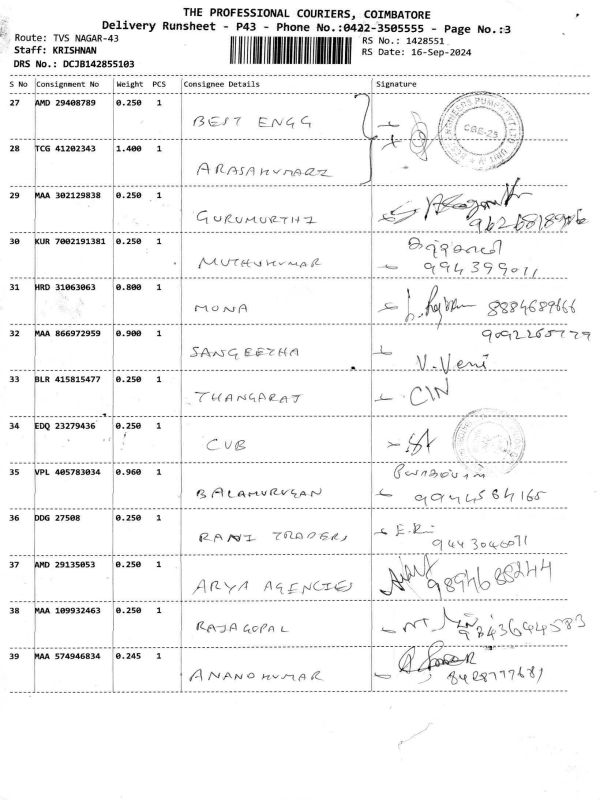 THE PROFESSIONAL COURIERS, COIMBATORE
Delivery Runsheet - P43 - Phone No.:0422-3505555 - Page No.:3
Route: TVS NAGAR-43
RS No.: 1428551
Staff: KRISHNAN
RS Date: 16-Sep-2024
DRS No.: DCJB142855103
S No Consignment No Weight PCS Consignee Details Signature
27 AMD 29408789 0.250 1 BEST ENGG
CBE-25
28 TCG 41202343 1.400 1 ARASAKUMARI
29 MAA 302129838 0.250 1 GURUMURTHI
30 KUR 7002191381 0.250 1 MUTHUKUMAR 994399011
31 HRD 31063063 0.800 1 MONA 8884689666
32 MAA 866972959 0.900 1 SANGEETHA 9092265779
V. Veni
33 BLR 415815477 0.250 1 THANGARAJ CIN
34 EDQ 23279436 0.250 1 CUB
35 VPL 405783034 0.960 1 BALAMURUGAN 9944584165
36 DDG 27508 0.250 1 RANI TRADERS 9443046071
37 AMD 29135053 0.250 1 ARYA AGENCIES 9894688244
38 MAA 109932463 0.250 1 RAJAGOPAL 9843644583
39 MAA 574946834 0.245 1 ANANDKUMAR 8428777681